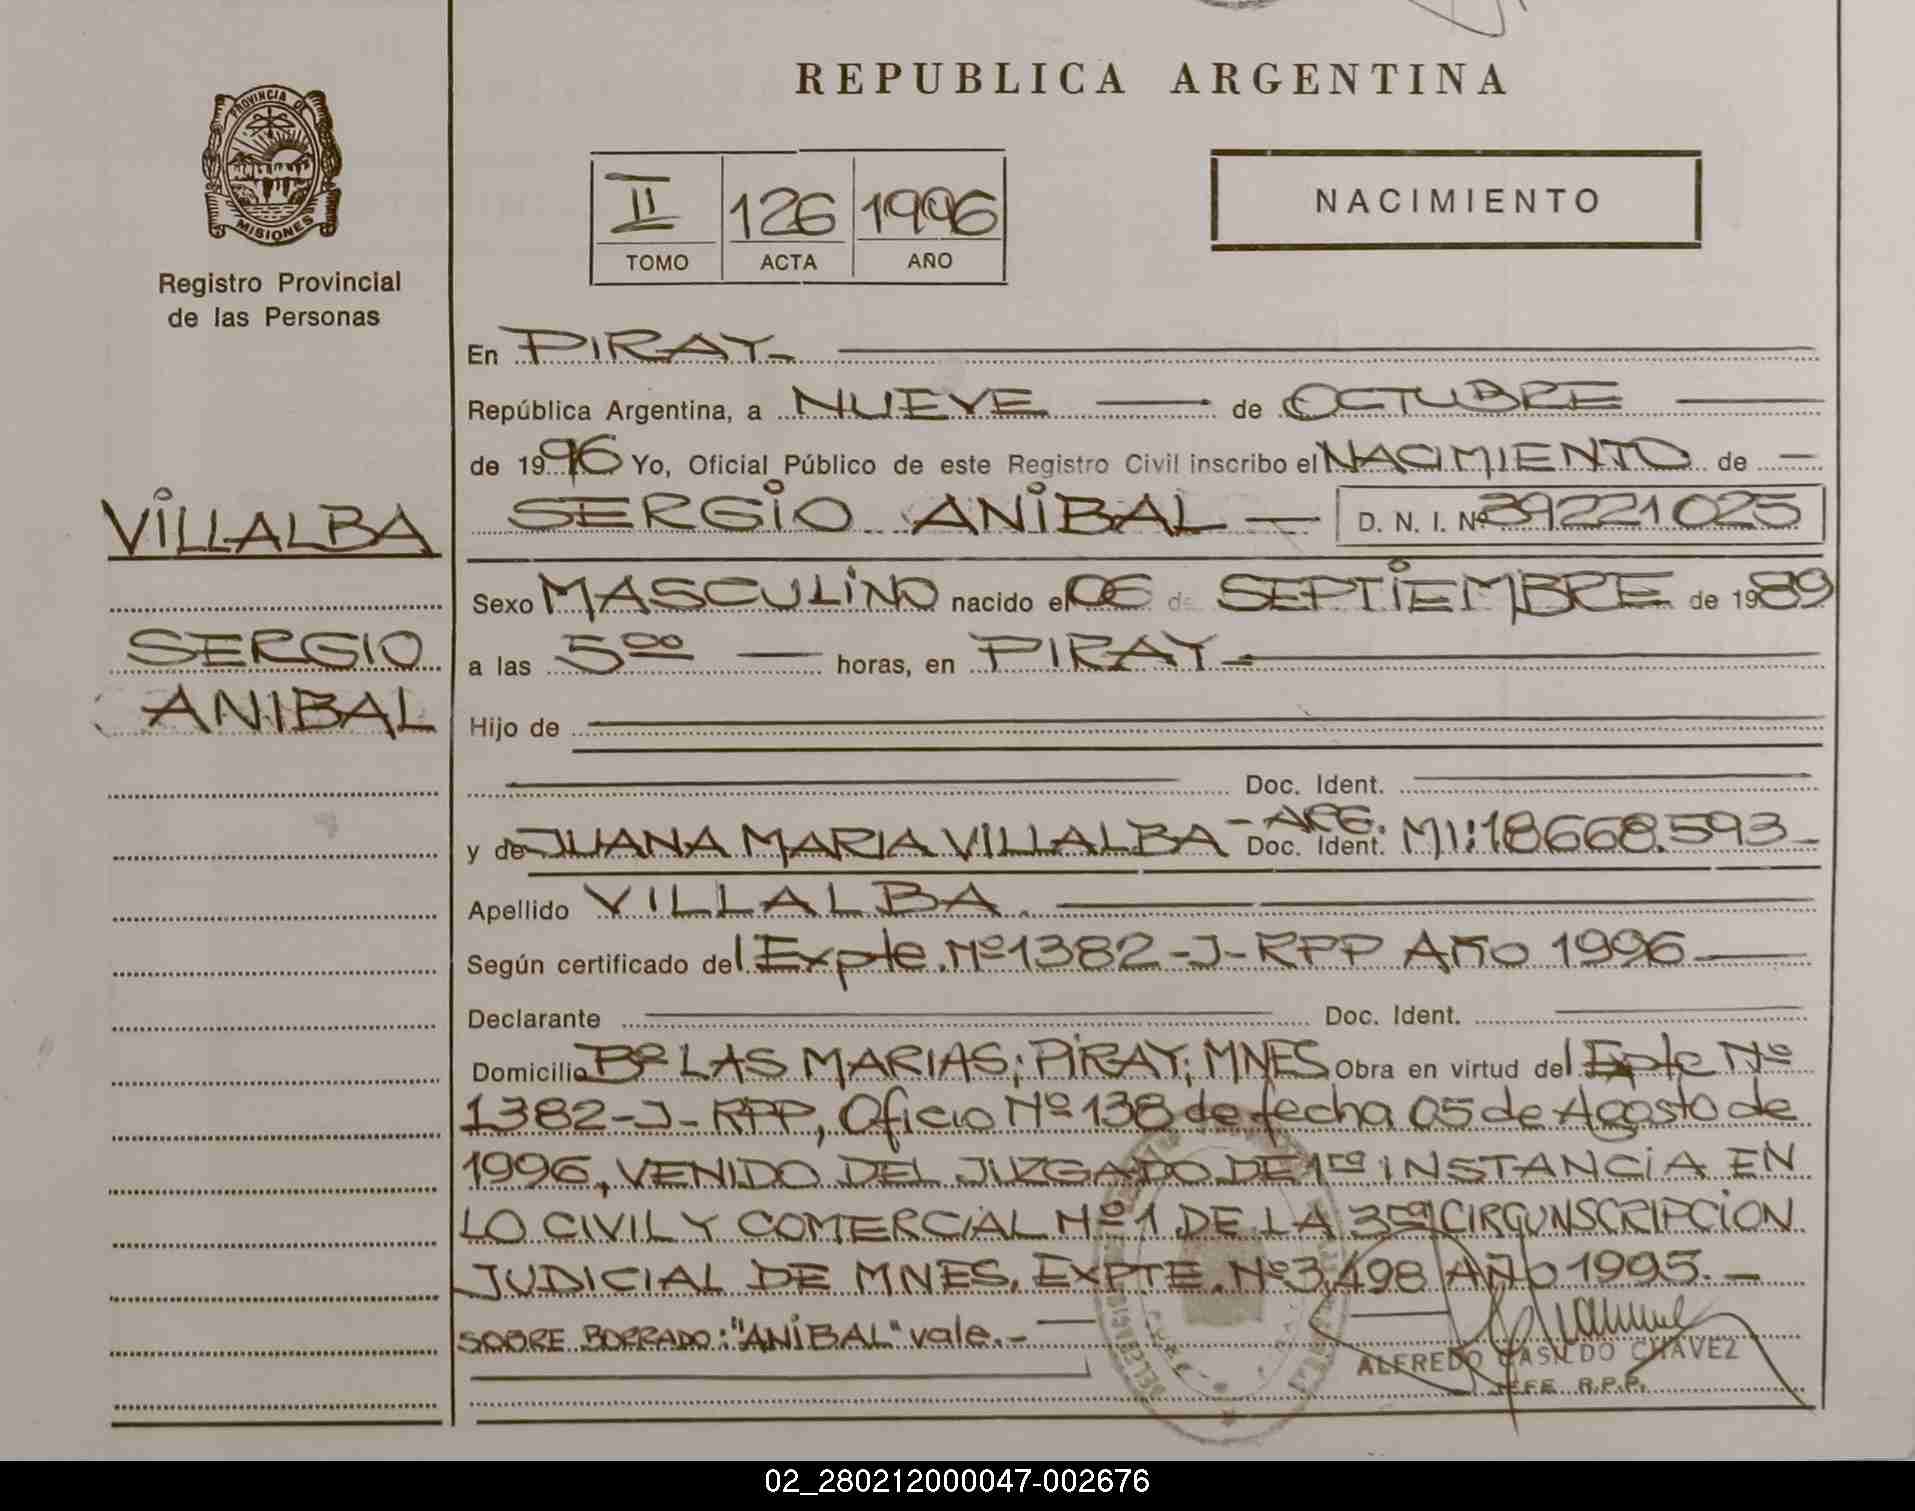 REPUBLICA ARGENTINA
PROVINCIA DE
MISIONES
Registro Provincial
de las Personas
II 126 1996
TOMO ACTA AÑO
NACIMIENTO
VILLALBA
SERGIO
ANIBAL
En PIRAY.-
República Argentina, a NUEVE de OCTUBRE
de 1996 Yo, Oficial Público de este Registro Civil inscribo el NACIMIENTO de
SERGIO ANIBAL D. N. I. Nº 39221025
Sexo MASCULINO nacido el 06 de SEPTIEMBRE de 1989
a las 5⁰⁰ horas, en PIRAY.-
Hijo de
Doc. Ident.
y de JUANA MARIA VILLALBA - ARG. Doc. Ident. MI: 18668.593
Apellido VILLALBA.
Según certificado del Expte. Nº 1382-J-RPP Año 1996
Declarante Doc. Ident.
Domicilio Bº LAS MARIAS; PIRAY; MNES Obra en virtud del Expte Nº
1382-J-RPP, Oficio Nº 138 de fecha 05 de Agosto de
1996, VENIDO DEL JUZGADO DE 1ra INSTANCIA EN
LO CIVIL Y COMERCIAL Nº 1 DE LA 3ra CIRCUNSCRIPCION
JUDICIAL DE MNES. EXPTE. Nº 3.498 AÑO 1995.-
SOBRE BORRADO: "ANIBAL" vale.-
ALFREDO CASILDO CHAVEZ
JEFE R.P.P.
02_280212000047-002676